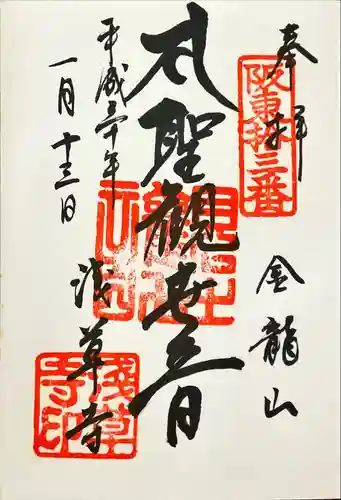 奉拝
阪東拾三番
金龍山
聖観世音
浅草寺
平成三十年
一月十三日
浅草
寺印